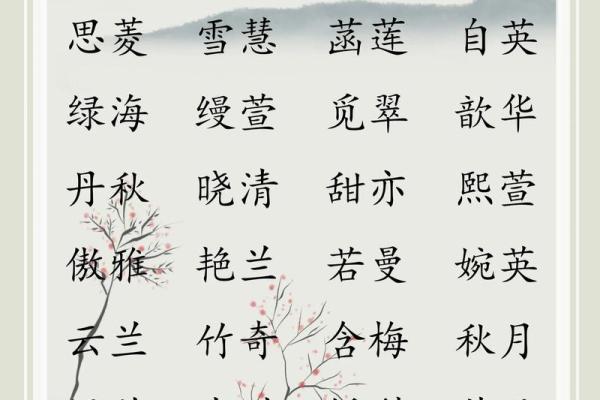 思菱 雪慧 菡莲 自英
绿海 缦萱 觅翠 歆华
丹秋 晓清 甜亦 熙萱
傲雅 艳兰 若曼 婉英
云兰 竹奇 含梅 秋月